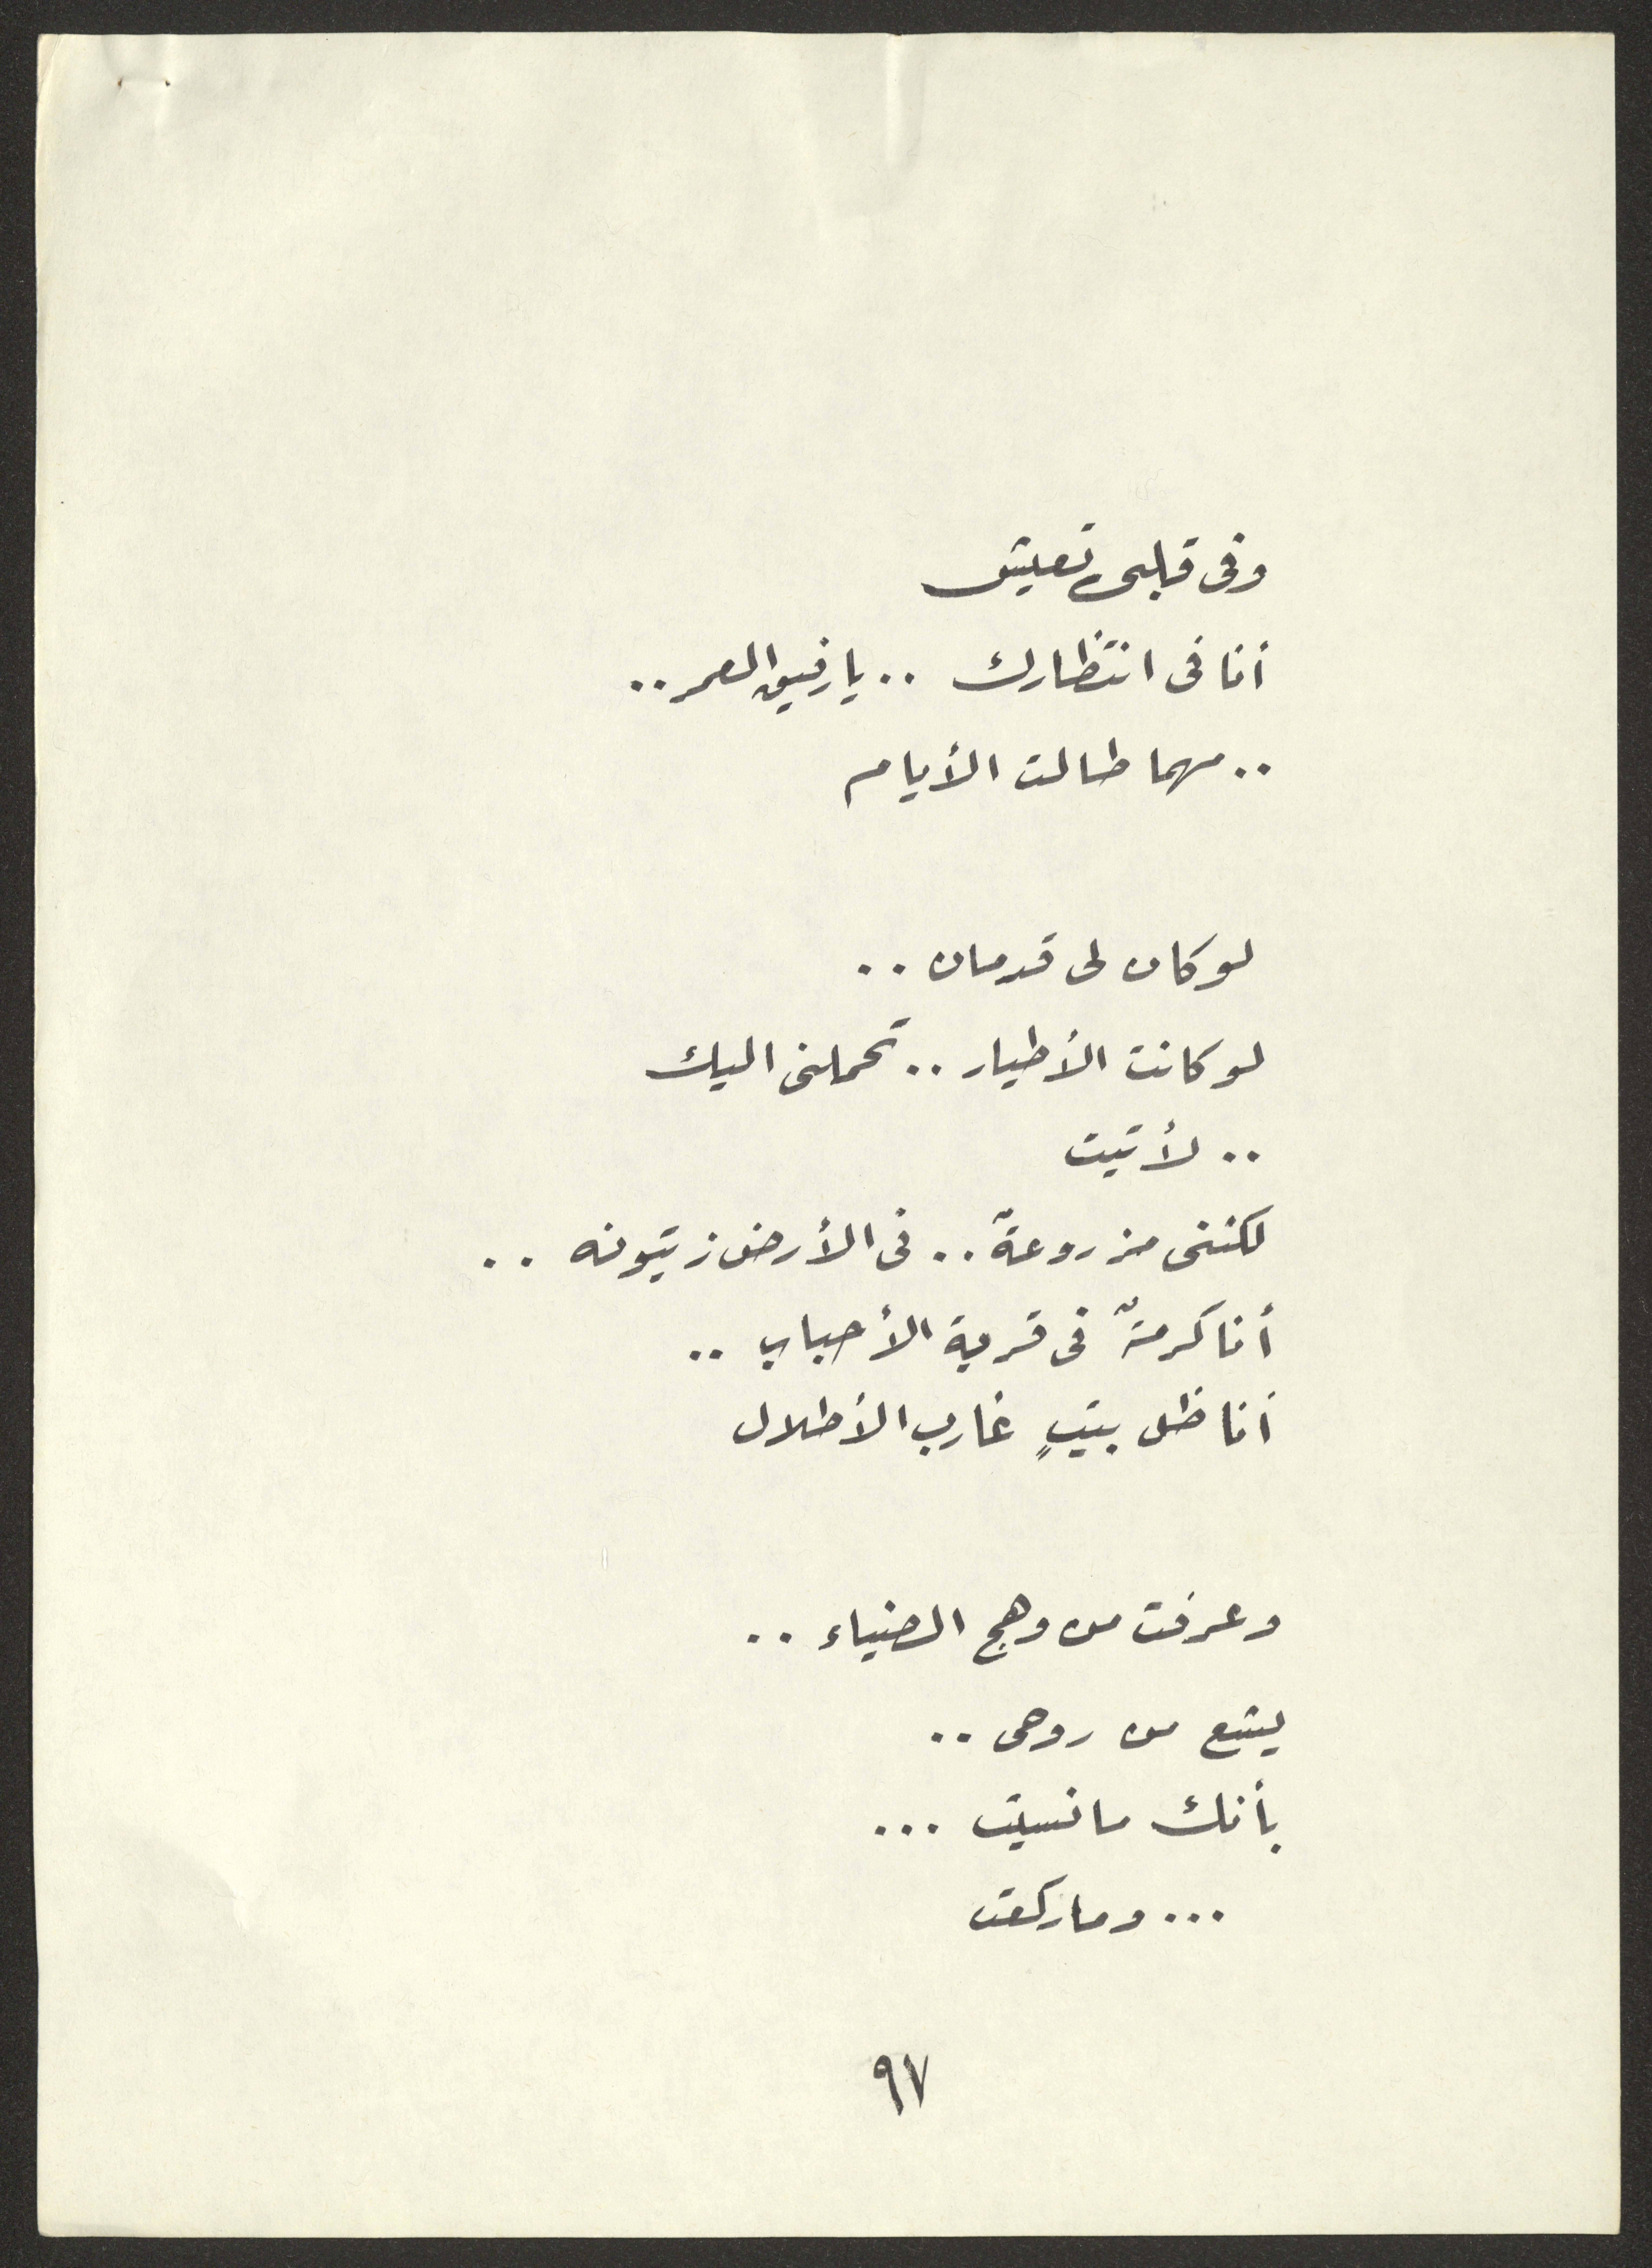 وفى قلبى تعيش
أنا فى انتظارك .. يا رفيق العمر ..
.. مهما طالت الأيام
لو كان لى قدمان ..
لو كانت الأطيار .. تحملنى اليك
.. لأتيت
لكننى مزروعةٌ .. فى الأرض زيتونه ..
أنا كرمةٌ فى قرية الأحباب ..
أنا ظل بيتٍ غارب الأطلال
وعرفت من وهج الضياء ..
يشع من روحى ..
بأنك ما نسيت ...
... وما ركعت
٩٧